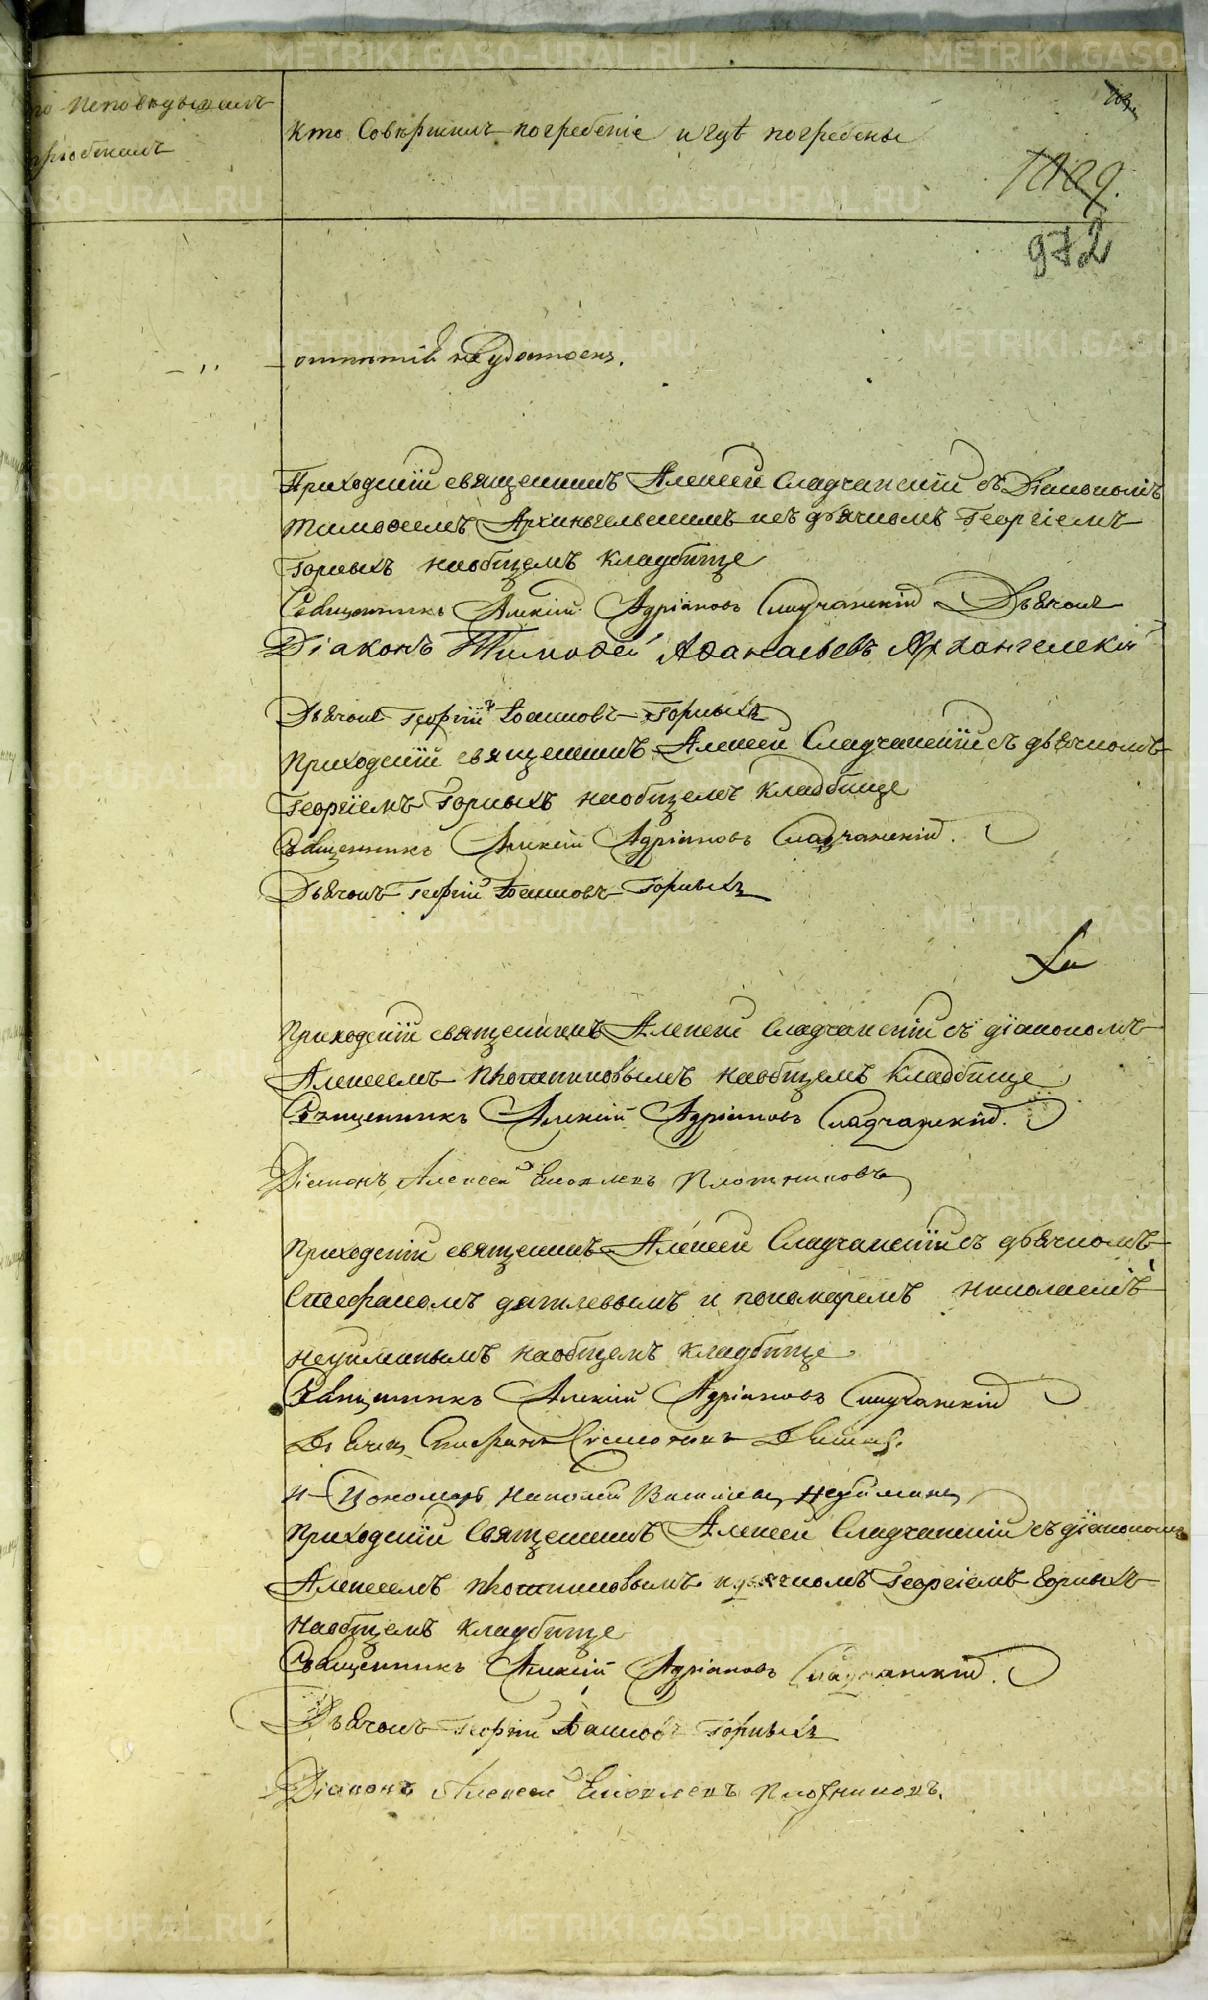 METRIKI.GASO-URAL.RU
Исповѣдывалъ
Кто Совершилъ погребеніе и гдѣ погребены
972
отпѣтія неудостоенъ.
Приходскій священникъ Алексѣй Сладчанскій съ Діакономъ
Тимофеемъ Архангельскимъ и съ дьячкомъ Георгіемъ
Горныхъ наобщемъ кладбище
Священникъ Алексій Адріановъ Сладчанскій Дьячокъ
Діаконъ Тимофей Афанасьевъ Архангелскій
Дьячокъ Георгій Іоанновъ Горныхъ
Приходскій священникъ Алексѣй Сладчанскій съ дьячкомъ
Георгіемъ Горныхъ наобщемъ кладбище
Священникъ Алексій Адріановъ Сладчанскій.
Дьячокъ Георгій Іоанновъ Горныхъ
Приходскій священникъ Алексѣй Сладчанскій съ діакономъ
Алексеемъ Плотниковымъ наобщемъ кладбище
Священникъ Алексій Адріановъ Сладчанскій.
Діаконъ Алексей Іаковлевъ Плотниковъ
Приходскій священникъ Алексѣй Сладчанскій съ дьячкомъ
Стефаномъ дягилевымъ и пономаремъ Николаемъ
неуйминымъ наобщемъ кладбище
Священникъ Алексій Адріановъ Сладчанскій
Дьячекъ Стефанъ
и Пономарь Николай Васильевъ Неуйминъ
Приходскій Священникъ Алексѣй Сладчанскій съ діакономъ
Алексеемъ Плотниковымъ и дьячкомъ Георгіемъ Горныхъ
наобщемъ кладбище
Священникъ Алексій Адріановъ Сладчанскій.
Дьячокъ Георгій Іоанновъ Горныхъ
Діаконъ Алексей Іаковлевъ Плотниковъ.